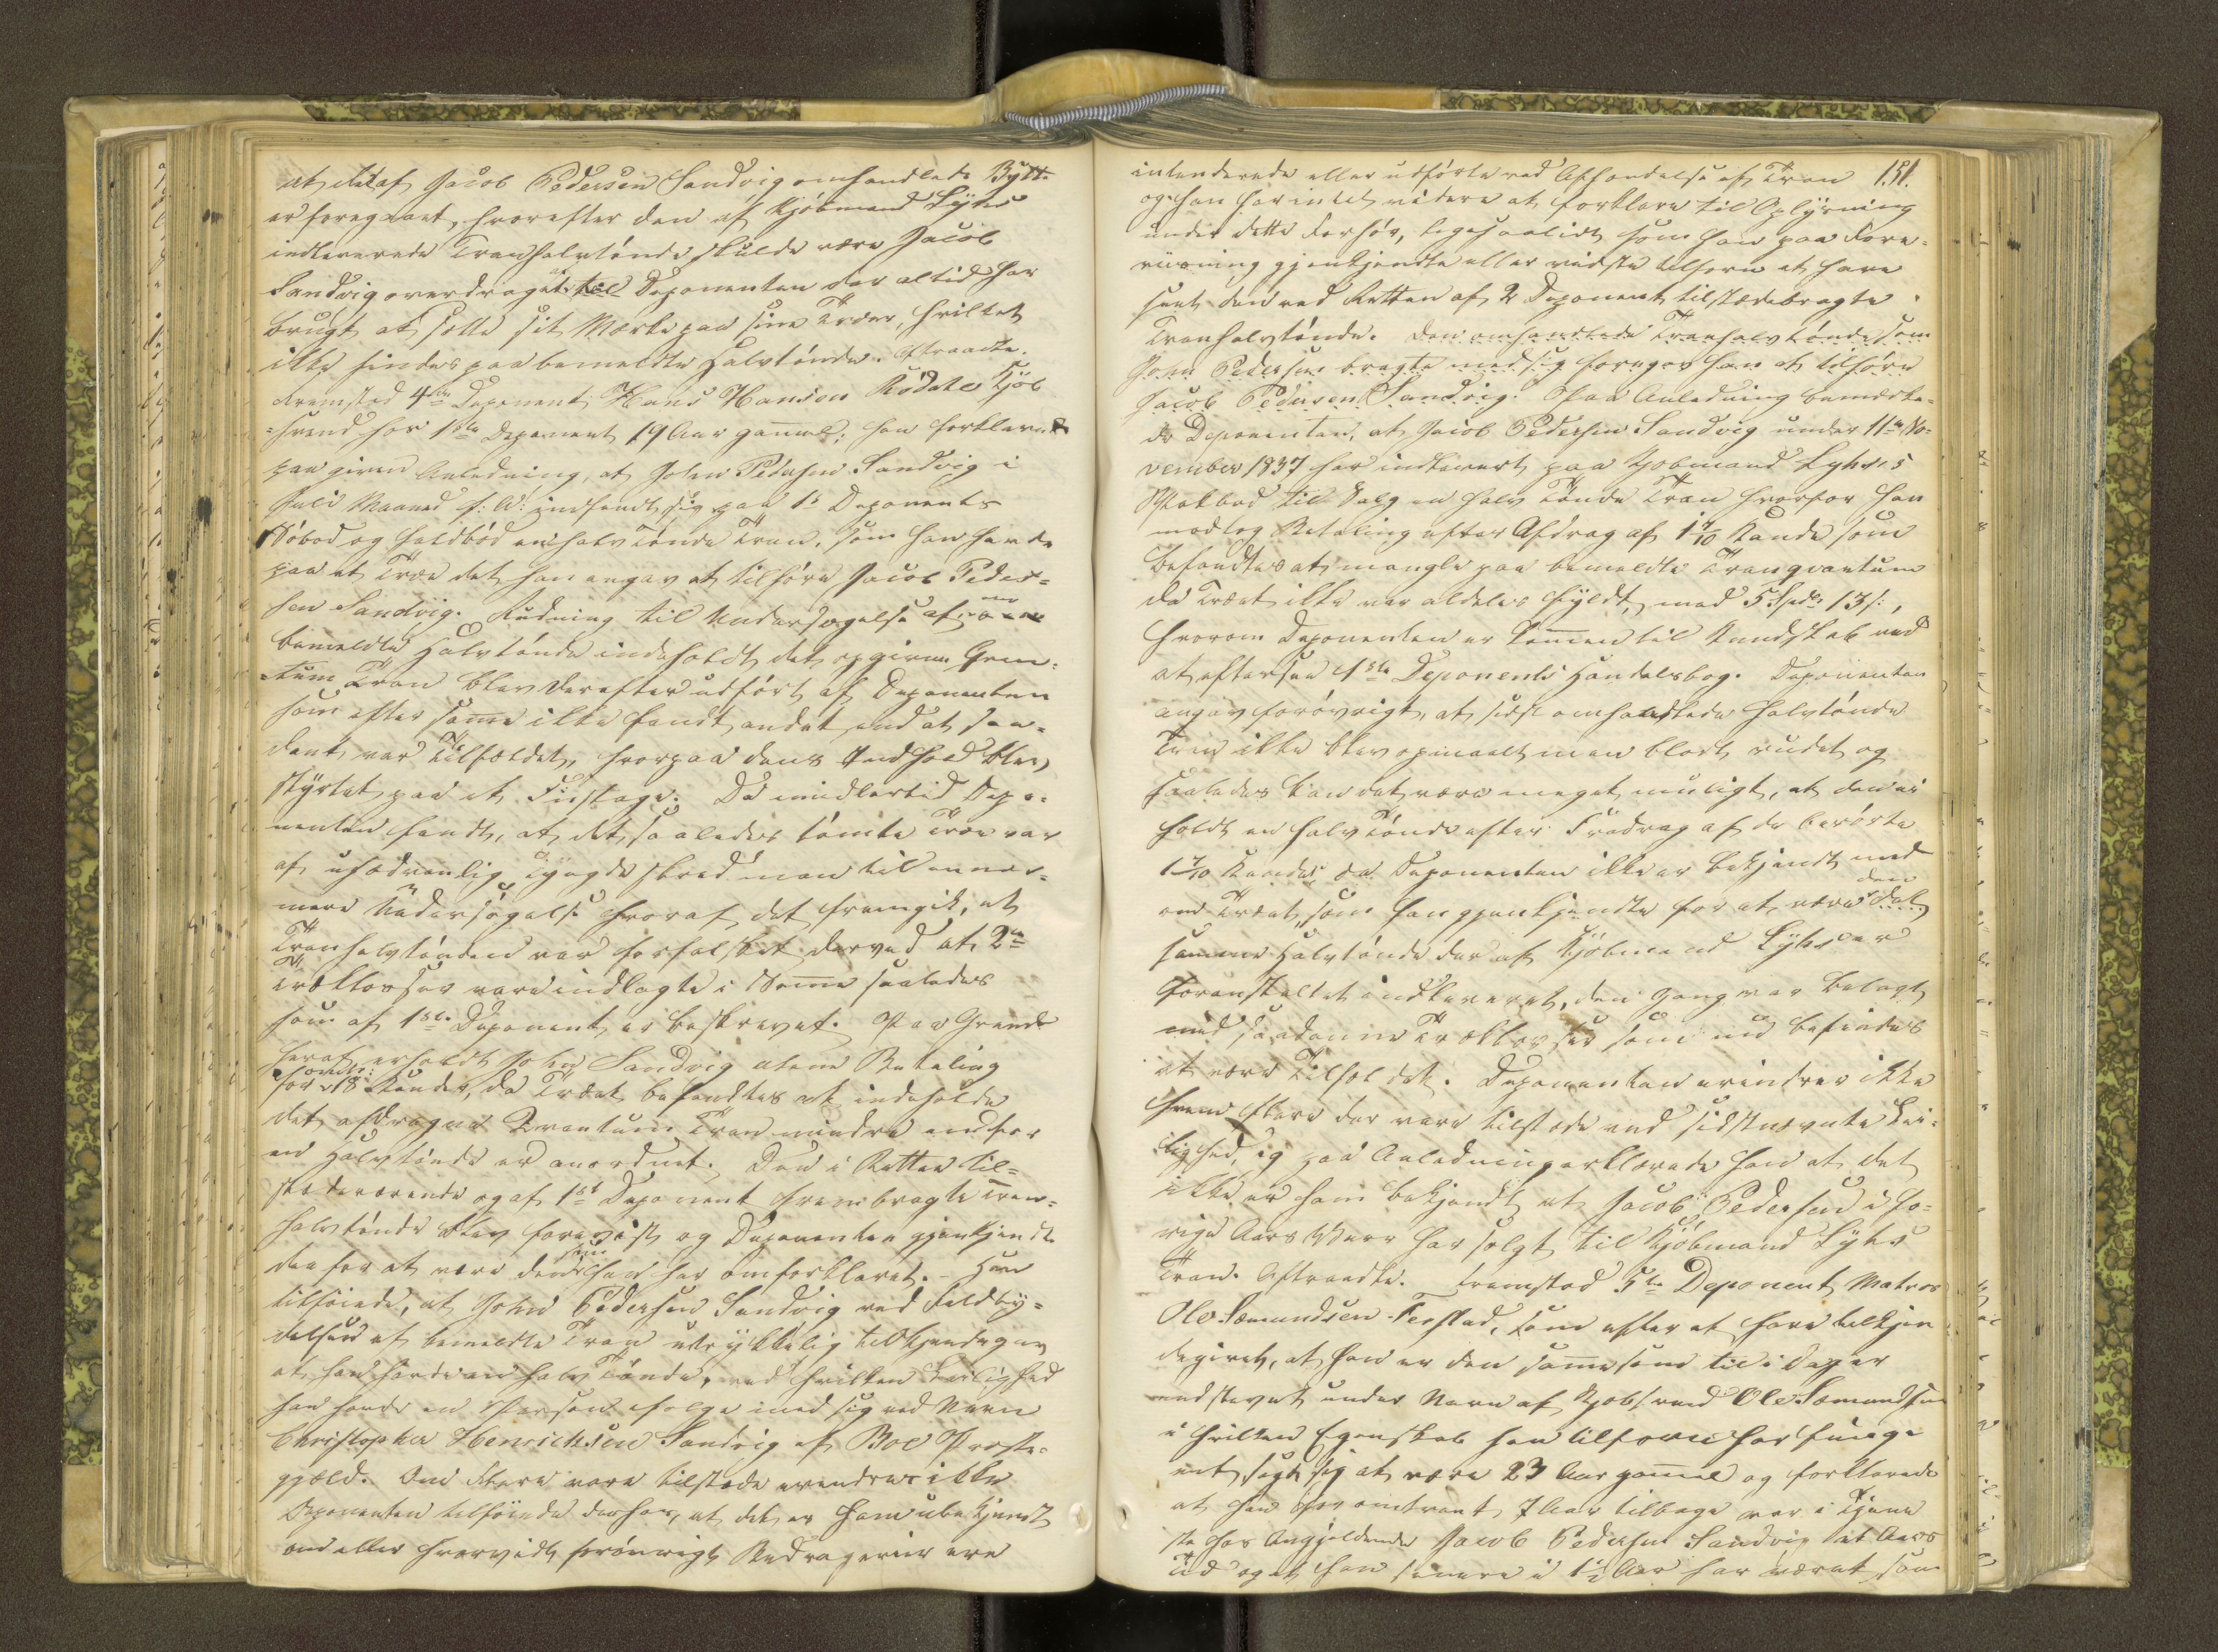 at det af Jacob Pedersen Sandvig omhandlede Bytte
er foregaaet, hvorefter den af Kjöbmand Lyhs
indleverede Tranhalvtönde skulde være Jacob
Sandvig overdraget af Deponenten der altid har
brugt at sætte sit Mærke paa sine Træer, hvilket
ikke findes paa bemeldte Halvtönde. Aftraadte.
Fremstod 4de Deponent Hans Hansen Rödahl Kjöb-
svend hos 1ste Deponent 19 Aar gammel; han forklarede
paa given Anledning, at John Pedersen Sandvig i
Juli Maaned f: A: indfandt sig paa 1ste Deponents
Söbod og faldböd en halv Tönde Tran, som han havde
paa et Træe det han angav at tilhöre Jacob Peder-
sen Sandvig. Rudning til Undersøgelse af om
bemeldte Halvtönde indeholdt det opgivne Qvan-
tum Tran blev derefter udfört af Deponenten
som efter samme ikke fandt andet end at saa-
dant var Tilfældet, hvorpaa dens Indhold blev
styrtet paa et Fustage. Da imidlertid Depo-
nenten fandt, at det saaledes tömte Træe var
af usædvanlig Tyngde skred man til en nær-
mere Undersögelse hvoraf det fremgik, at
Tranhalvtönden var forfalsket derved at 2de
Træklosser vare indlagte i Samme saaledes
som af 1ste Deponent er beskrevet. Paa Grund
heraf erholdt John Sandvig alene Betaling
for 18 Kander, da Træet befandtes at indeholde
det afdragne Qvantum Tran mindre end for
en Halvtönde er anordnet. Den i Retten til-
stedeværende og af 1ste Deponent frembragte Tran-
halvtönde blev forevist og Deponenten gjenkjendte
den for at være den som han har omforklaret. - Han
tilföiede, at John Pedersen Sandvig ved Faldby-
delsen af bemeldte Tran udtrykkelig tilkjendegav
at han havde en halv Tönde, ved hvilken Leilighed
han havde en Person ifølge med sig ved Navn
Christopher Henrichsen Sandvig af Boe Præste-
gjæld. Om Flere vare tilstede erindres ikke
Deponenten tilföiede derhos, at det er ham ubekjendt
om eller hvorvidt forövrigt Bedragerier ere
intenderede eller udförte ved Afhændelse af Tran 151.
og han har intet videre at forklare til Oplysning
under dette Forhör, ligesaalidt som han paa Fore-
viisning gjenkjendte eller vidste tilforn at have
seet den ved Retten af 2 Deponent tilstedebragte
Tranhalvtönde. Den omhandlede Tranhalvtönde som
John Pedersen bragte med sig foregav han at tilhöre
Jacob Pedersen Sandvig. Paa Anledning bemærke-
de Deponenten, at Jacob Pedersen Sandvig under 11te No-
vember 1837 har indleveret paa Kjöbmand Lyhs's
Pakbod til Salg en halv Tönde Tran hvorfor han
modtog Betaling efter Afdrag af 1 7/10 Kande som
befandtes at mangle paa bemeldte Tranqvantum
da Træet ikke var aldeles fyldt, med 5 Spd 13 s:,
hvorom Deponenten er kommen til Kundskab ved
at eftersee 1ste Deponents Handelsbog. Deponenten
angav forövrigt, at sidst omhandlede Halvtönde
Tran ikke blev opmaalt men blot rudet og
saaledes kan det være meget muligt, at den ei
holdt en halv Tönde efter Fradrag af de berörte
1 7/10 Kande, da Deponenten ikke er bekjendt med
om Træet, som han gjenkjendte for at være den
samme Halvtönde der af Kjöbmand Lyhs er
foranstaltet indleveret, den Gang var belagt
med saadanne Træklosser som nu befindes
at være Tilfældet. Deponenten erindrer ikke
hvem flere der vare tilstede ved sidstnævnte Lei-
lighed, og paa Anledning erklærede han at det
ikke er ham bekjendt at Jacob Pedersen i fo-
rige Aars Vaar har solgt til Kjöbmand Lyhs
Tran. Aftraadte. Fremstod 5te Deponent Matros
Ole Tæmundsen Ferstad, som efter at have tilkjen
degivet, at han er den samme som til i Dag er
indstevnt under Navn af Kjöbsvend Ole Tæmundsen
i hvilken Egenskab han tilforn har funge
ret, sagde sig at være 23 Aar gammel og forklarede
at han for omtrent 7 Aar tilbage var i Tjene
ste hos Angjeldende Jacob Pedersen Sandvig et Aars
Tid og at han senere i 1½ Aar har været som